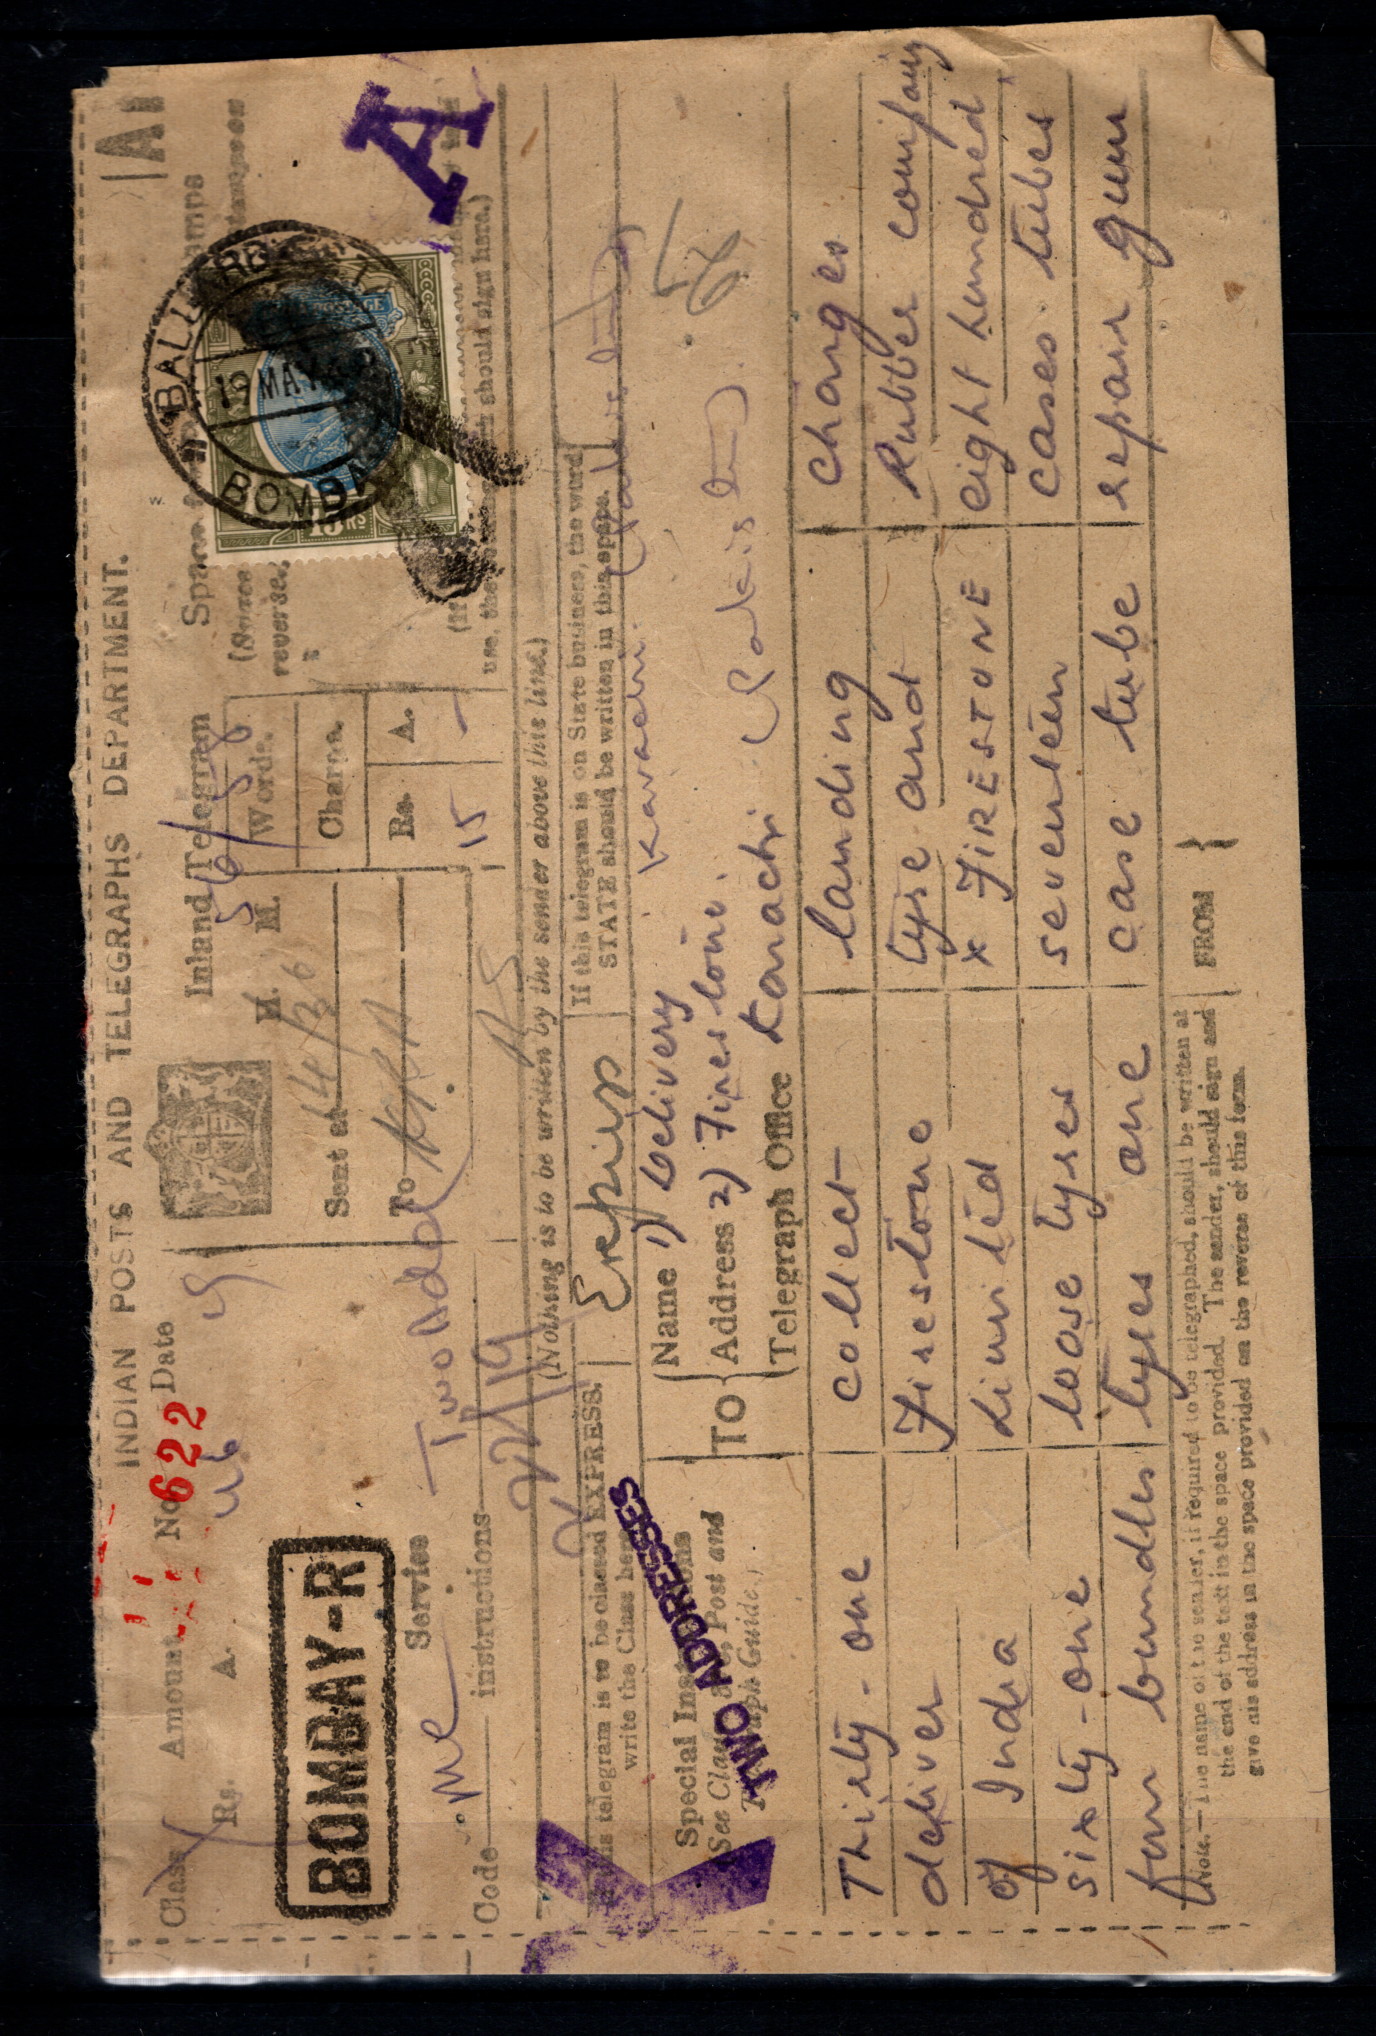 INDIAN POSTS AND TELEGRAPHS DEPARTMENT.
A
Class Amount No 622 Date
Rs. A.
Inland Telegram
56/58
Words.
H. M.
Sent at 14/30
To
Charge.
Rs. A.
15 -
BALLARD
19 MAY
BOMBAY
15 RS
POSTAGE
BOMBAY-R
A
Service
Code instructions
Two Add
(Nothing is to be written by the sender above this line.)
use, the should sign here.)
If this telegram is to be classed EXPRESS.
write the Class here
Express
If this telegram is on State business, the word
STATE should be written in this space.
X
TWO ADDRESSES
Special Instructions
See Clause Post and
Guide.)
TO
Name 1) Delivery Karachi
Address 2) Firestone.
Telegraph Office Karachi (Pakistan).
Thirty-one collect landing charges
deliver Firestone tyre and Rubber company
of India Limited x FIRESTONE eight hundred
sixty-one loose tyres seventeen cases tubes
four bundles tyres one case tube repair gum
Note.—The name of the sender, if required to be telegraphed, should be written at
the end of the text in the space provided. The sender, should sign and
give his address in the space provided on the reverse of this form.
FROM